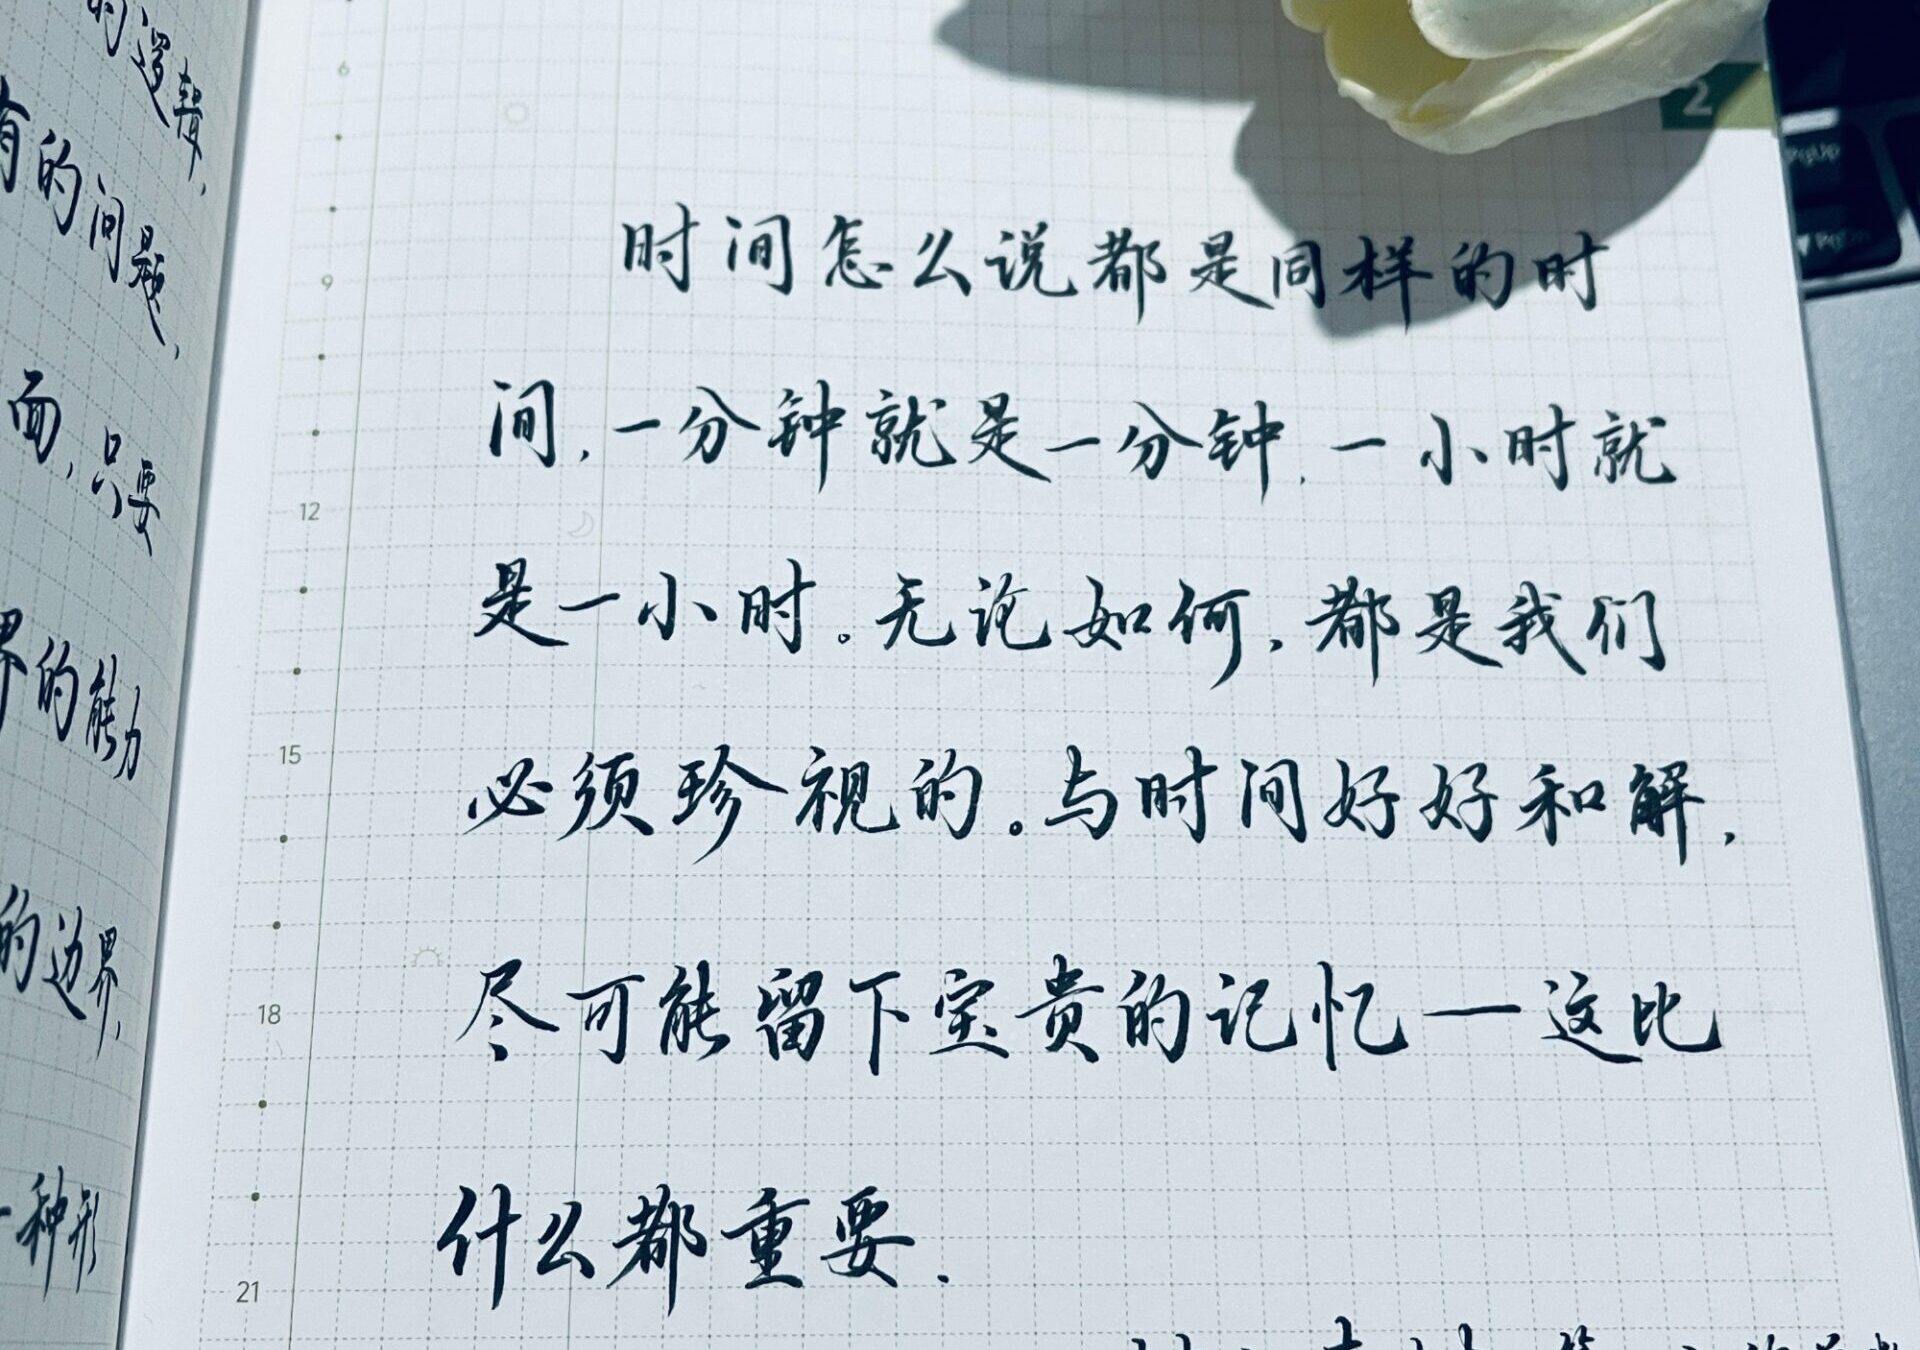 的逻辑，
有的问题，
面，只要
界的能力
的边界，
一种形
6
9
12
15
18
21
2
PgUp
PgDn
时间怎么说都是同样的时
间，一分钟就是一分钟，一小时就
是一小时。无论如何，都是我们
必须珍视的。与时间好好和解，
尽可能留下宝贵的记忆——这比
什么都重要.